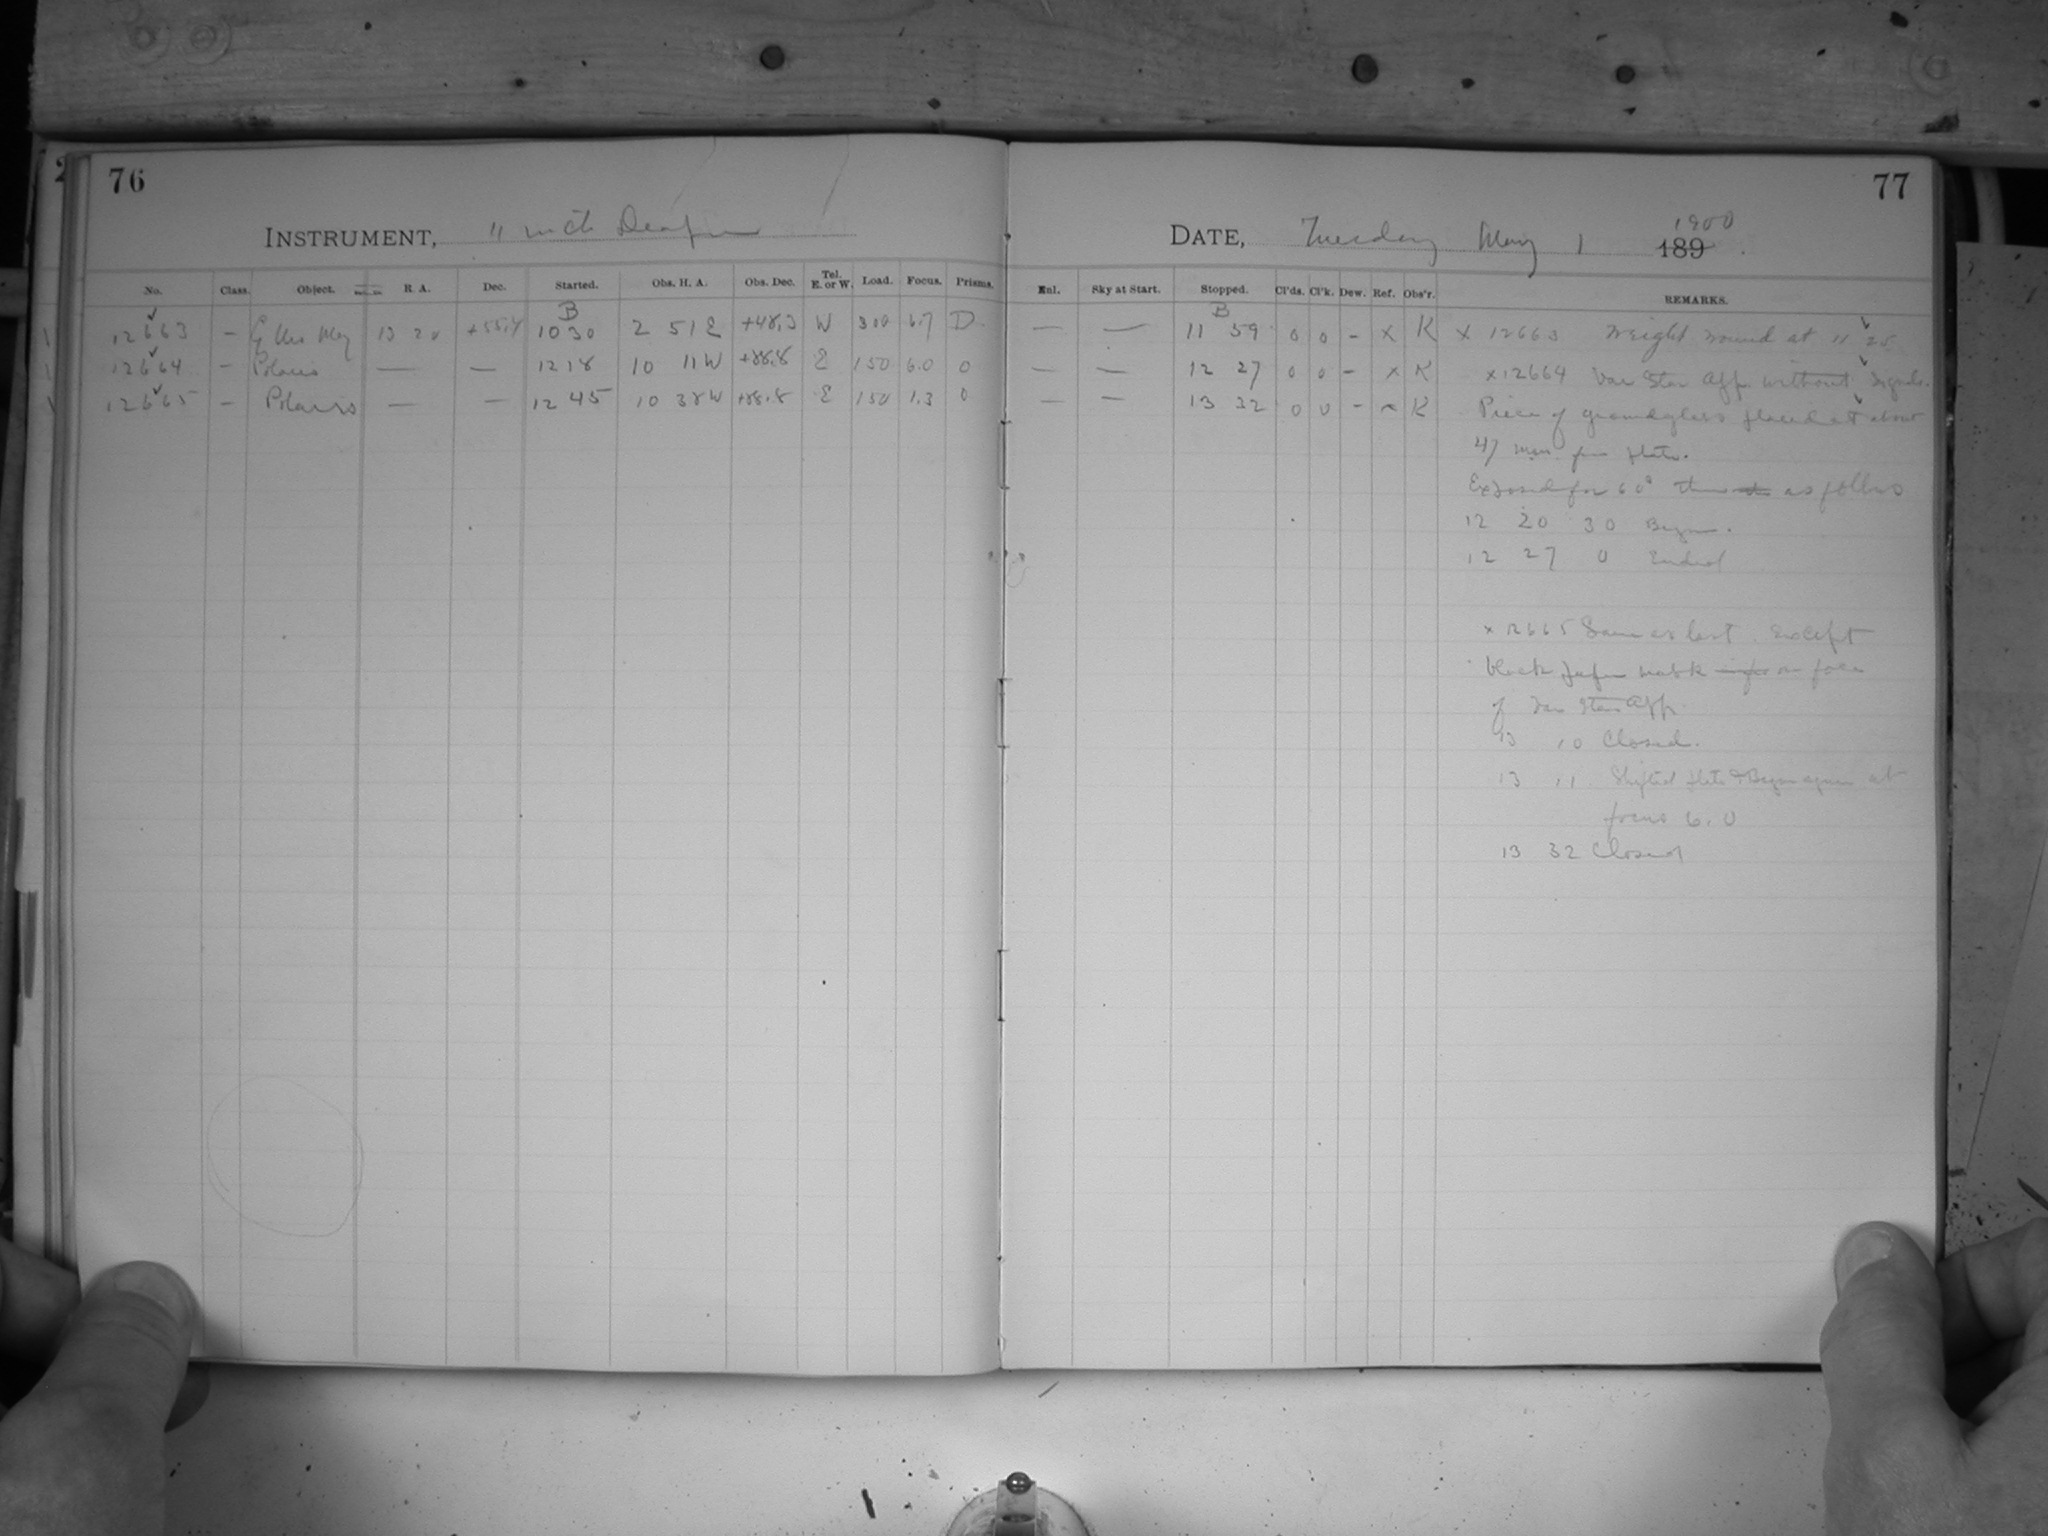 76
77
INSTRUMENT, 11 inch Draper
DATE, Tuesday May 1 1900 189
No. Class. Object. R. A. Dec. Started. Obs. H. A. Obs. Dec. Tel. E. or W. Load. Focus. Prisms. Enl. Sky at Start. Stopped. Cl'ds. Cl'k. Dew. Ref. Obs'r. REMARKS.
B B
12663 — 13 20 +55.4 10 30 2 51 E +48.3 W 300 6.7 D — — 11 59 0 0 – x K x 12663 Weight wound at 11 25
12664 — Polaris — — 12 18 10 11 W +88.8 E 150 6.0 0 — — 12 27 0 0 – x K x 12664 Var Star App. without
12665 — Polaris — — 12 45 10 38 W +88.8 E 150 1.3 0 — — 13 32 0 0 – x K Piece of groundglass placed at about
47 mm. from plate.
Exposed for 60s as follows
12 20 30 Began.
12 27 0 Ended
x 12665 Same as last. Except
black paper mask on face
of Var Star App.
13 10 Closed.
13 11 Shifted plate & Began again at
focus 6.0
13 32 Closed